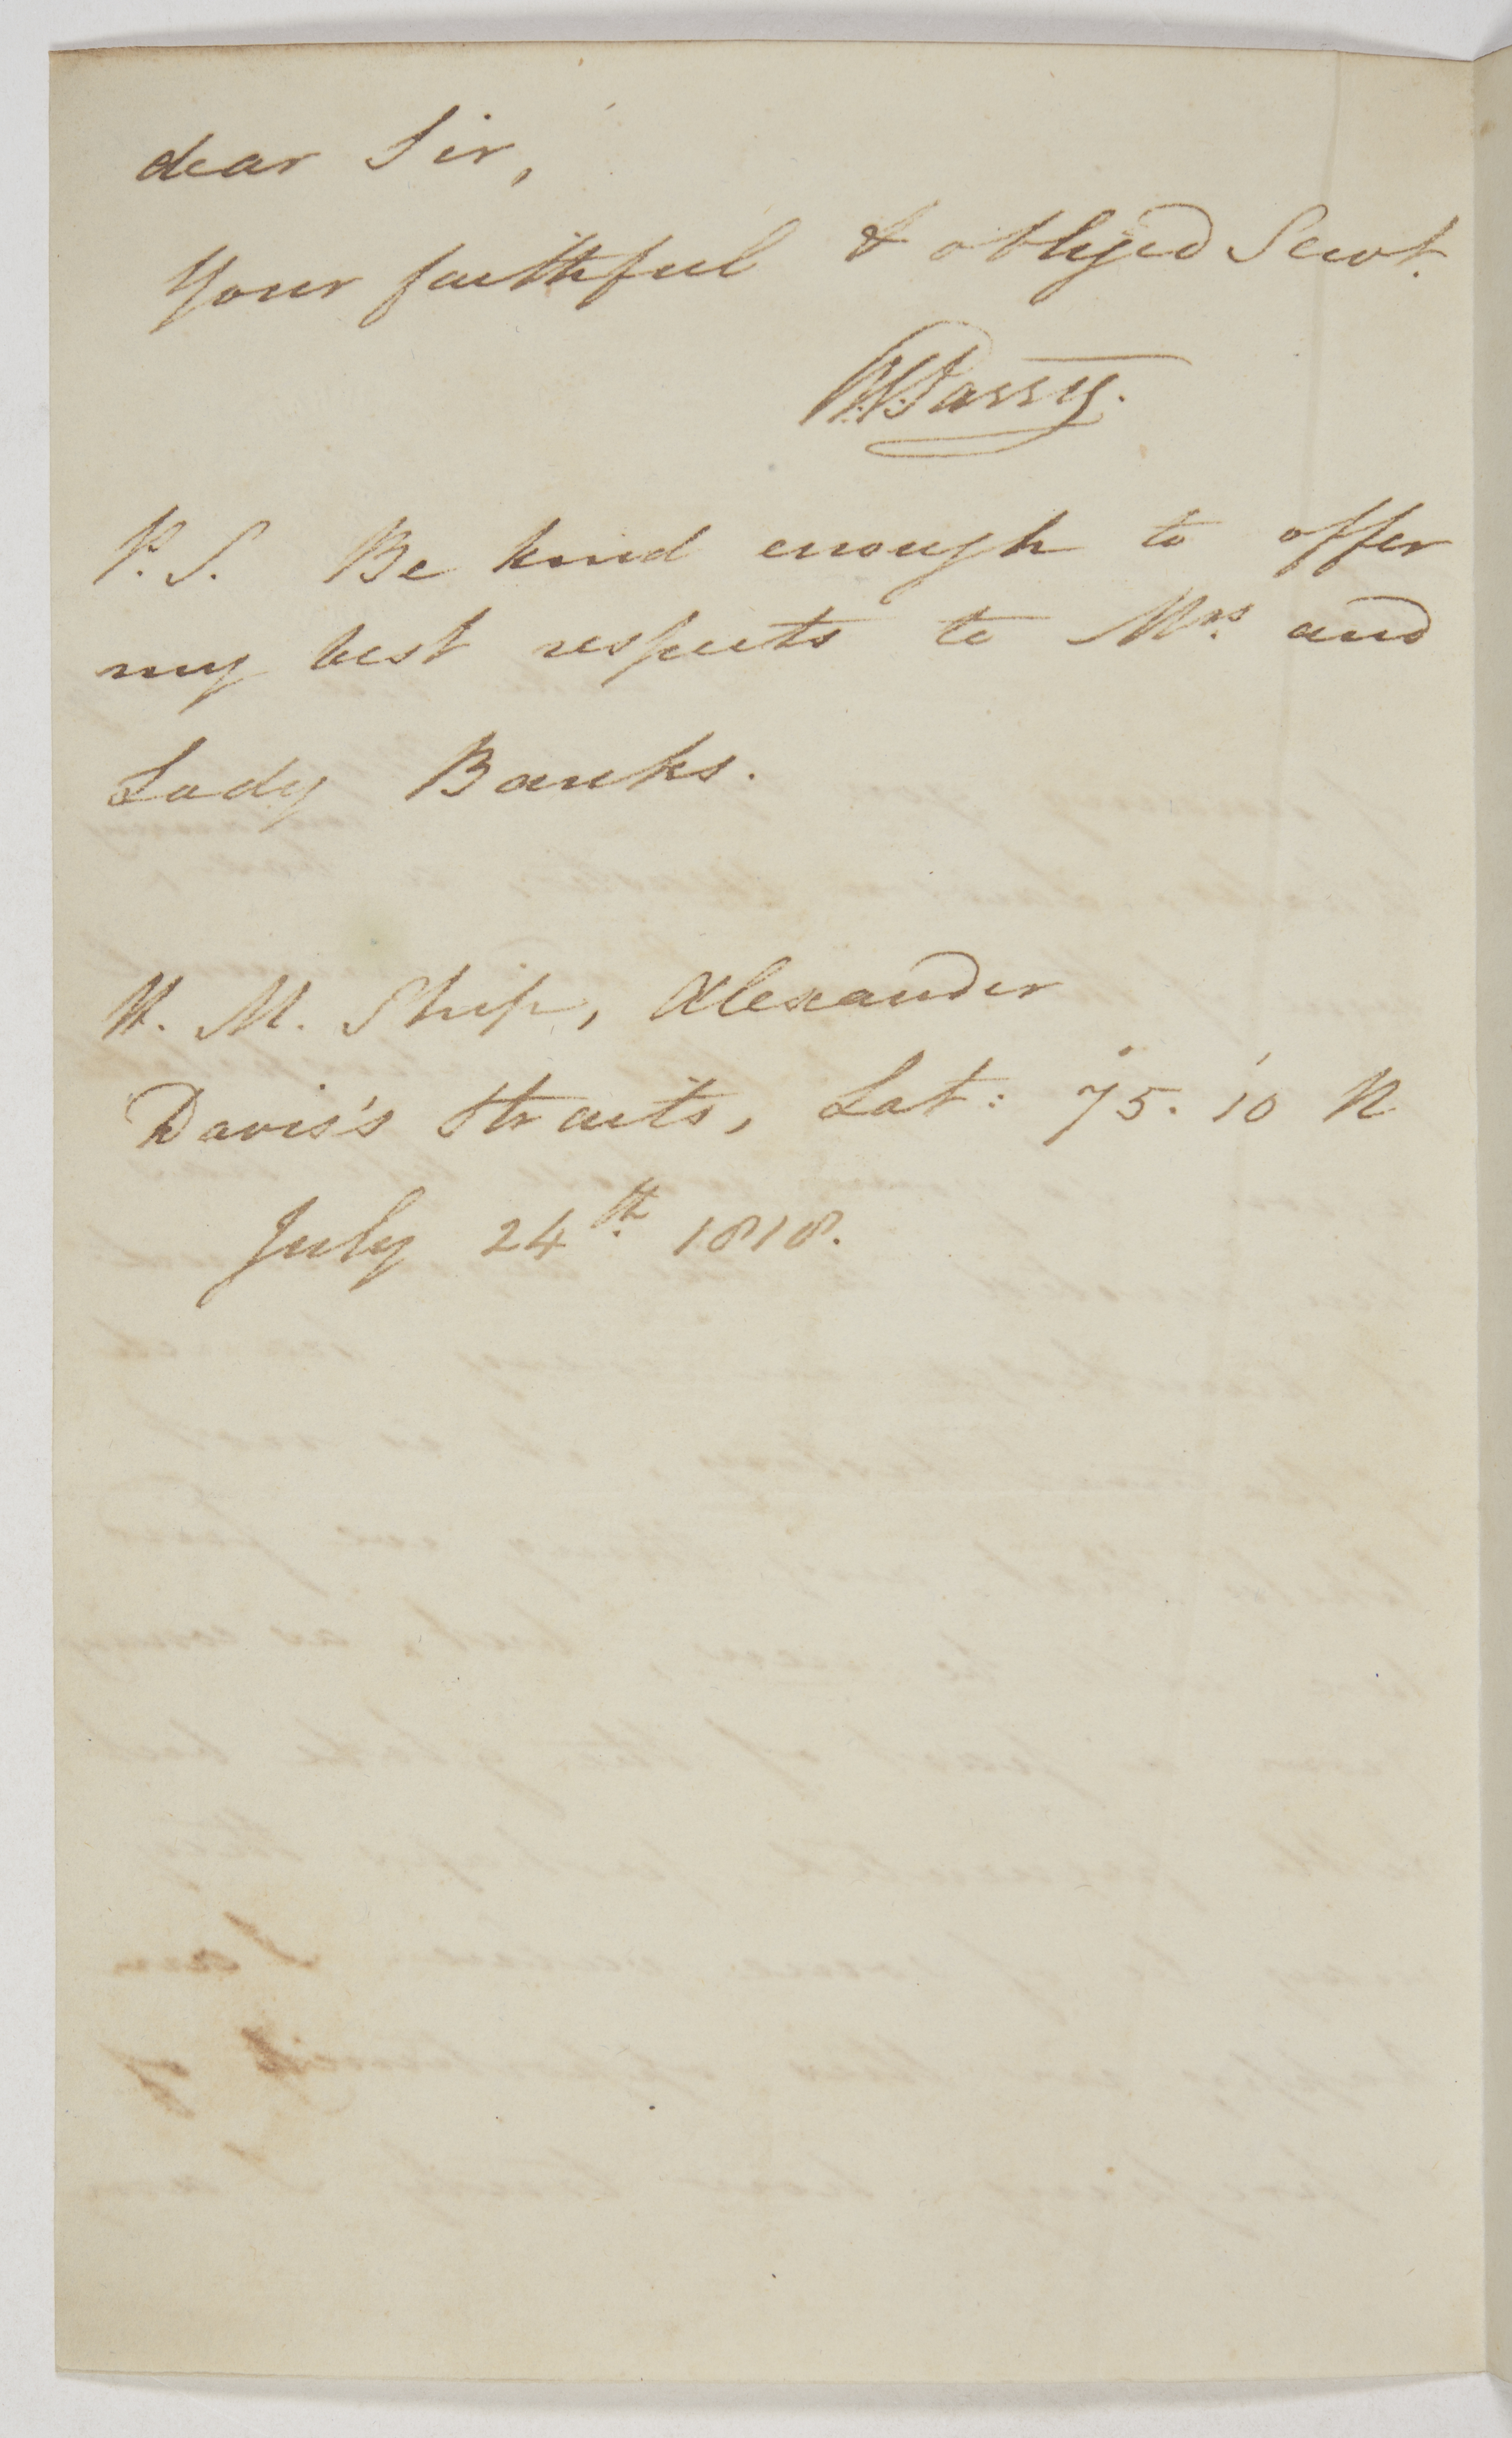 dear Sir,
Your faithful & obliged Servt.
WEParry.
P. S. Be kind enough to offer
my best respects to Mrs. and
Lady Banks.
H. M. Ship, Alexander
Davis's Straits, Lat: 75.° 10' N
July 24th. 1818.